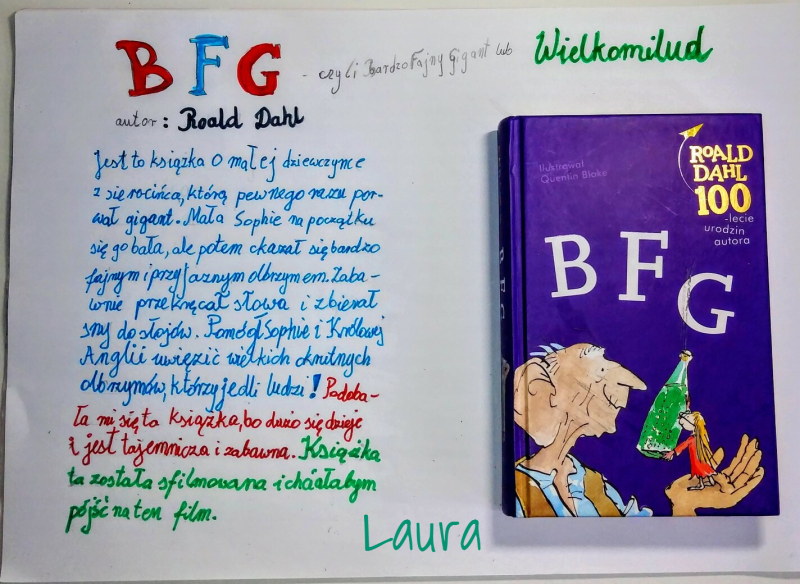 BFG - czyli Bardzo Fajny Gigant lub Wielkomilud
autor: Roald Dahl
Jest to książka o małej dziewczynce
z sierocińca, którą pewnego razu por-
wał gigant. Mała Sophie na początku
się go bała, ale potem okazał się bardzo
fajnym i przyjaznym olbrzymem. Zaba-
wnie przekręcał słowa i zbierał
sny do słojów. Pomógł Sophie i Królowej
Anglii uwięzić wielkich okrutnych
olbrzymów, którzy jedli ludzi! Podoba-
ła mi się ta książka, bo dużo się dzieje
i jest tajemnicza i zabawna. Książka
ta została sfilmowana i chciałabym
pójść na ten film.
Laura
Ilustrował
Quentin Blake
ROALD
DAHL
100
-lecie
urodzin
autora
BFG
BFG